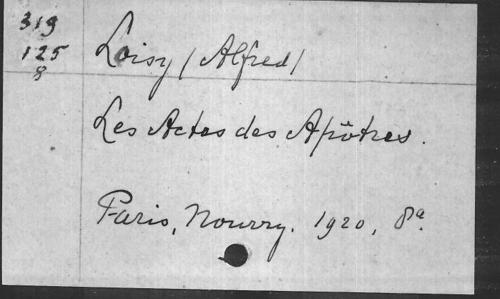 319
125
8
Loisy (Alfred)
Les Actes des Apôtres.
Paris, Nourry. 1920, 8º.